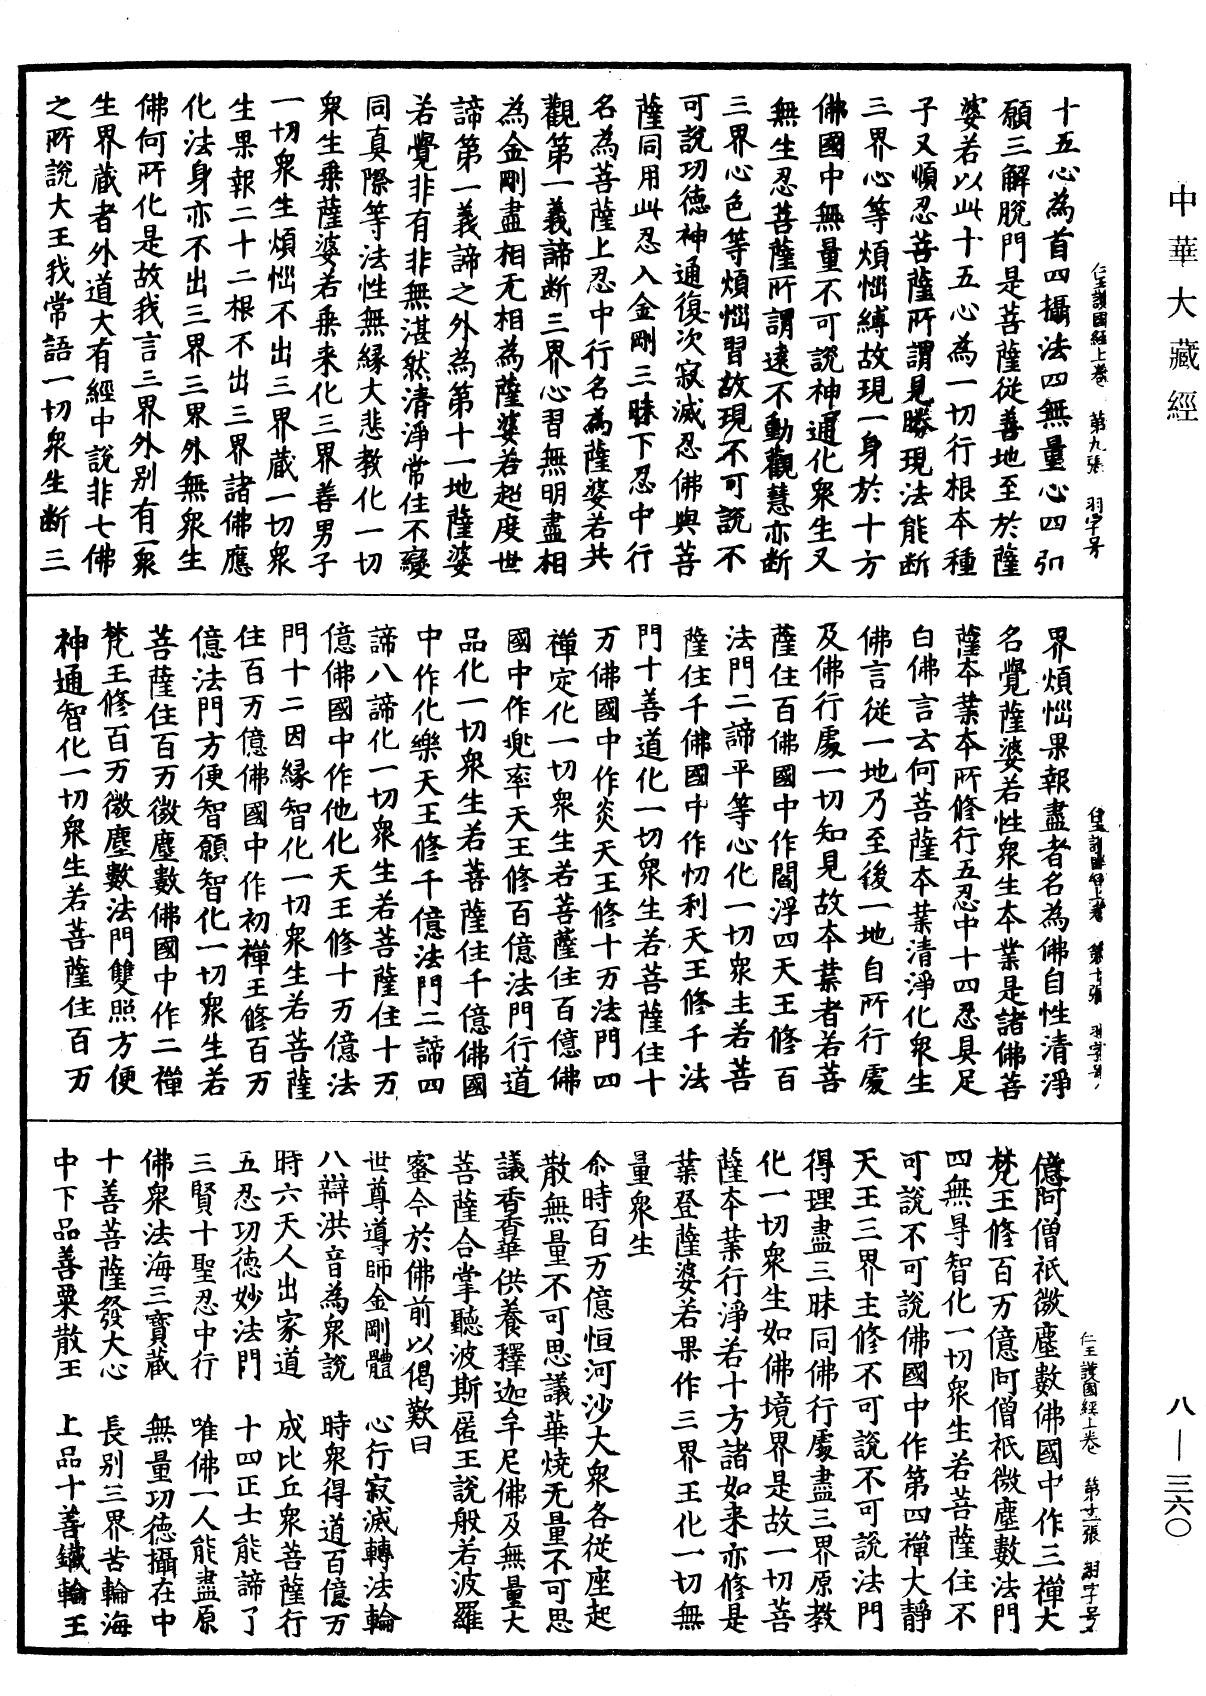 中華大藏經
仁王護國經上卷 第九張 羽字号
十五心為首四攝法四無量心四弘
願三解脫門是菩薩從善地至於薩
婆若以此十五心為一切行根本種
子又順忍菩薩所謂見勝現法能斷
三界心等煩惱縛故現一身於十方
佛國中無量不可說神通化衆生又
無生忍菩薩所謂遠不動觀慧亦斷
三界心色等煩惱習故現不可說不
可說功德神通復次寂滅忍佛與菩
薩同用此忍入金剛三昧下忍中行
名為菩薩上忍中行名為薩婆若共
觀第一義諦斷三界心習無明盡相
為金剛盡相无相為薩婆若超度世
諦第一義諦之外為第十一地薩婆
若覺非有非無湛然清淨常住不變
同真際等法性無緣大悲教化一切
衆生乗薩婆若乗来化三界善男子
一切衆生煩惱不出三界蔵一切衆
生果報二十二根不出三界諸佛應
化法身亦不出三界三界外無衆生
佛何所化是故我言三界外別有一衆
生界蔵者外道大有經中說非七佛
之所說大王我常語一切衆生斷三
仁王護國經上卷 第十張 羽字号
界煩惱果報盡者名為佛自性清淨
名覺薩婆若性衆生本業是諸佛菩
薩夲業夲所修行五忍中十四忍具足
白佛言云何菩薩夲業清淨化衆生
佛言從一地乃至後一地自所行處
及佛行處一切知見故夲業者若菩
薩住百佛國中作閻浮四天王修百
法門二諦平等心化一切衆主若菩
薩住千佛國中作忉利天王修千法
門十善道化一切衆生若菩薩住十
万佛國中作炎天王修十万法門四
禪定化一切衆生若菩薩住百億佛
國中作兜率天王修百億法門行道
品化一切衆生若菩薩住千億佛國
中作化樂天王修千億法門二諦四
諦八諦化一切衆生若菩薩住十万
億佛國中作他化天王修十万億法
門十二因緣智化一切衆生若菩薩
住百万億佛國中作初禪王修百万
億法門方便智願智化一切衆生若
菩薩住百万微塵數佛國中作二禪
梵王修百万微塵數法門雙照方便
神通智化一切衆生若菩薩住百万
仁王護國經上卷 第十一張 羽字号
億阿僧祇微塵數佛國中作三禪大
梵王修百万億阿僧祇微塵數法門
四無㝵智化一切衆生若菩薩住不
可說不可說佛國中作第四禪大靜
天王三界主修不可說不可說法門
得理盡三昧同佛行處盡三界原教
化一切衆生如佛境界是故一切菩
薩夲業行淨若十方諸如来亦修是
業登薩婆若果作三界王化一切無
量衆生
尒時百万億恒河沙大衆各從座起
散無量不可思議華燒无量不可思
議香香華供養釋迦牟尼佛及無量大
菩薩合掌聽波斯匿王說般若波羅
蜜今於佛前以偈歎曰
世尊導師金剛體 心行寂滅轉法輪
八辯洪音為衆說 時衆得道百億万
時六天人出家道 成比丘衆菩薩行
五忍功德妙法門 十四正士能諦了
三賢十聖忍中行 唯佛一人能盡原
佛衆法海三寶蔵 無量功德攝在中
十善菩薩發大心 長別三界苦輪海
中下品善粟散王 上品十善鐵輪王
八—三六〇